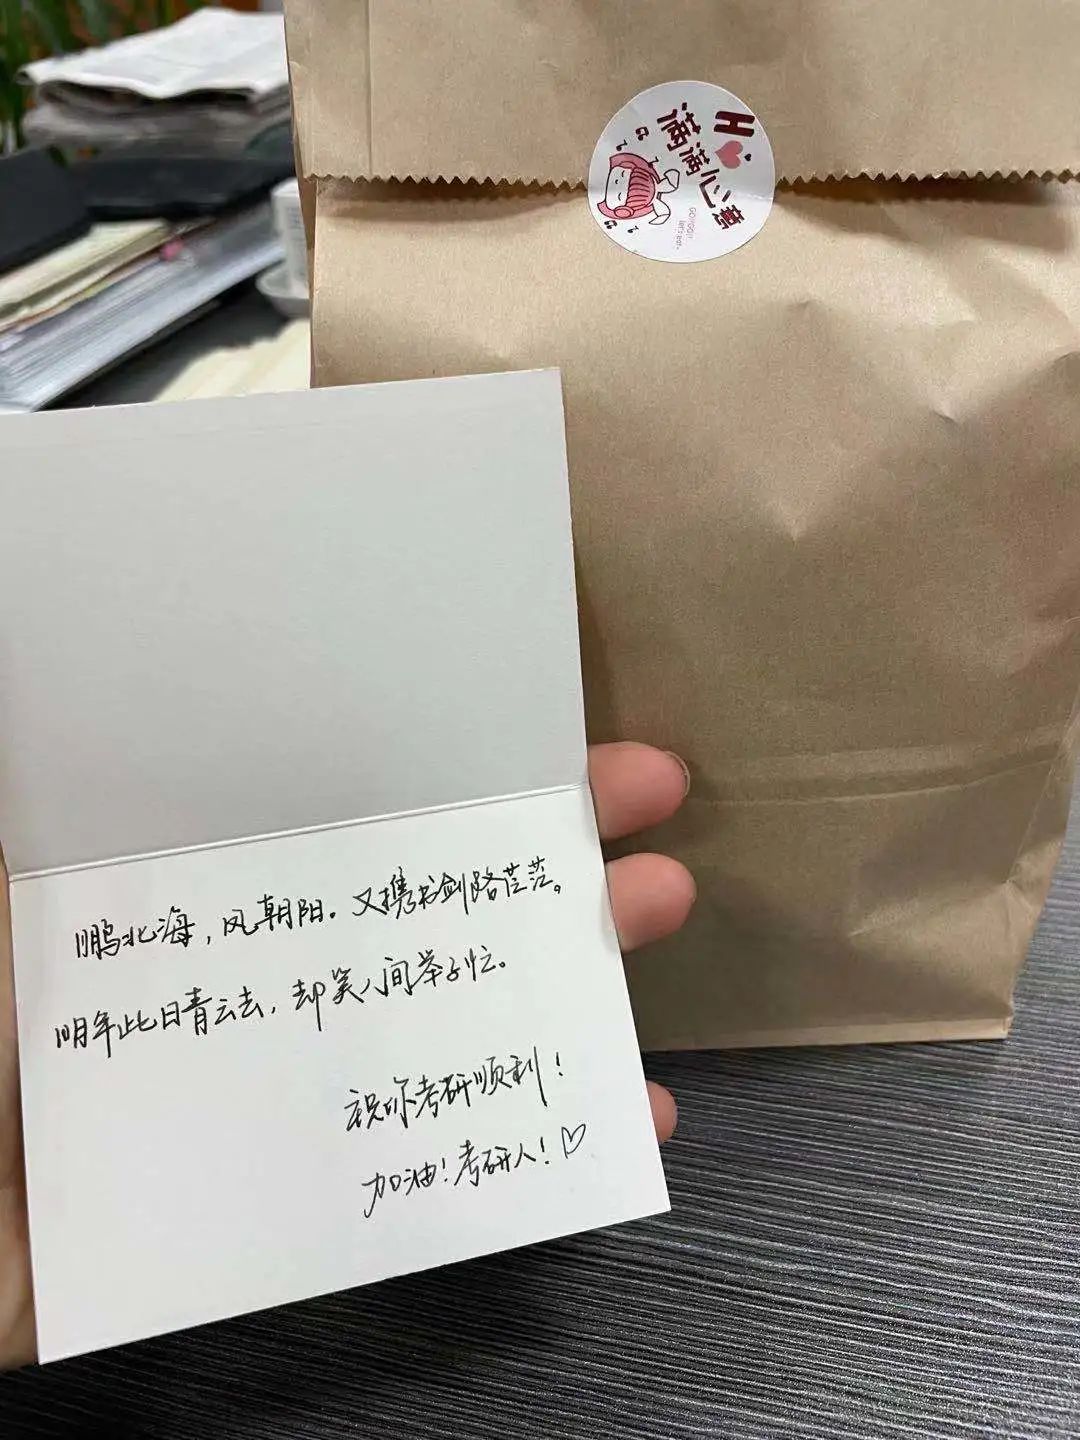 Hi
满满心意
鹏北海，风朝阳。又携书剑路茫茫。
明年此日青云去，却笑人间举子忙。
祝你考研顺利！
加油！考研人！♡